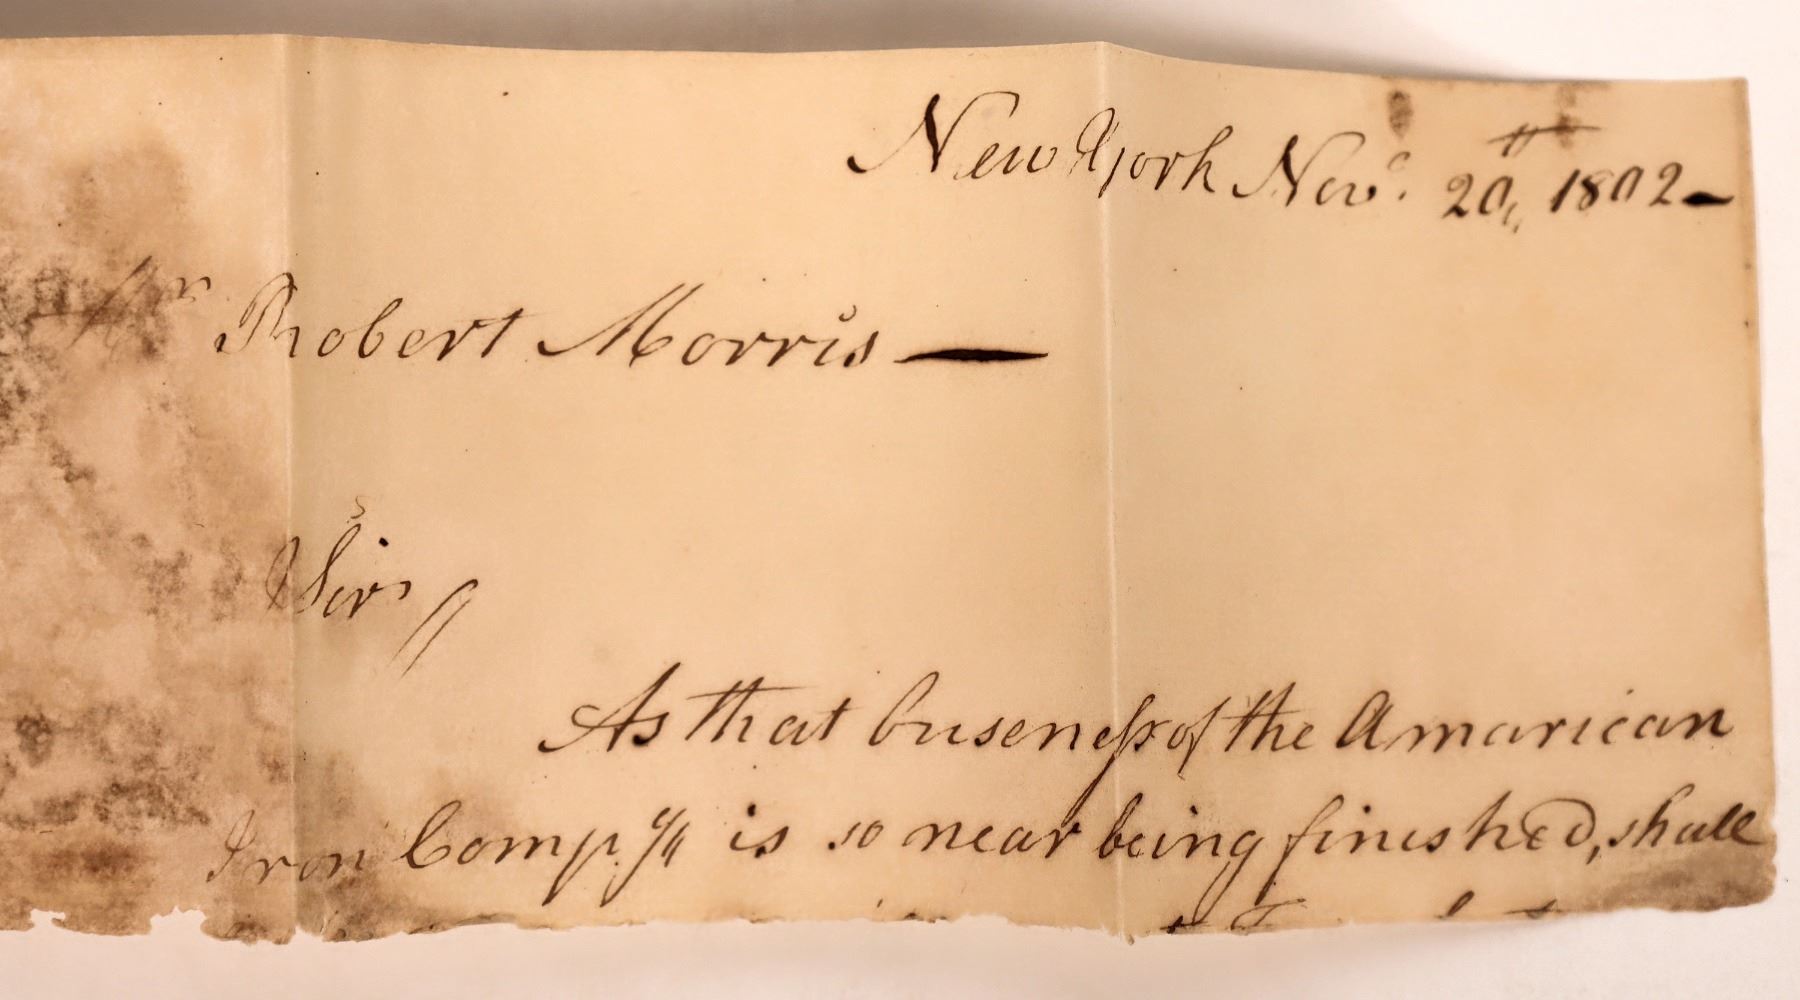 New York Novr. 20th, 1802 —
Mr Robert Morris —
Sir //
As that buseness of the Amarican
Iron Compy is so near being finished, shall